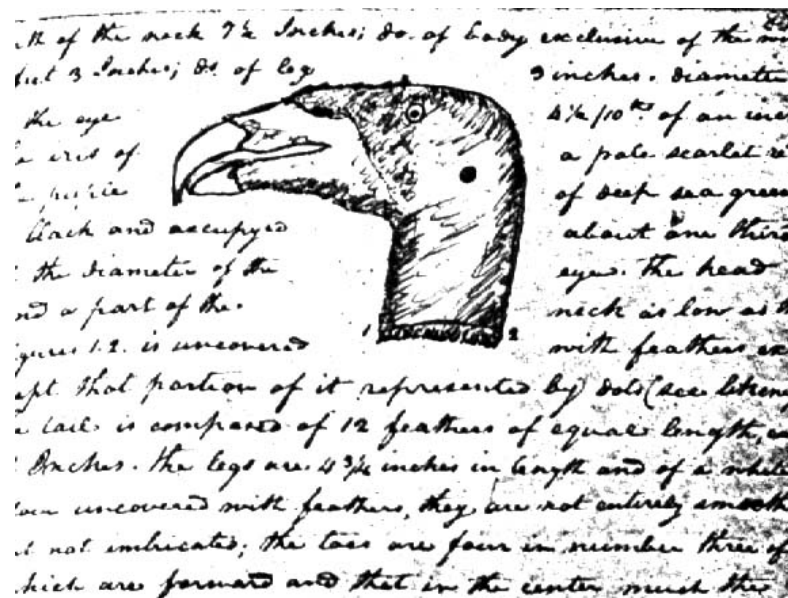 of the neck 7½ Inches; do. of body exclusive of the
3 Inches; do. of leg 3 inches. diameter
the eye 4½/10ths of an inch
iris of a pale scarlet
of deep sea green
black and occupyed about one third
the diameter of the eye. the head
and a part of the neck as low as
figures 1.2. is uncovered with feathers
1 2
that portion of it represented by dots (see
tail is composed of 12 feathers of equal length,
Inches. the legs are 4¾ inches in length and of a
uncovered with feathers, they are not entirely smooth
not imbricated; the toes are four in number three of
which are forward and that in the center much the